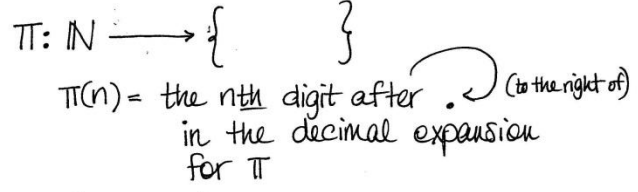 π: ℕ ⟶ { }
π(n) = the nth digit after . (to the right of)
in the decimal expansion
for π